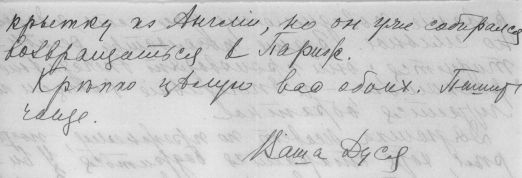 крытку из Англіи, но он уже собирался
возвращаться в Париж.
Крѣпко цѣлую вас обоих. Пишит
чаще.
Ваша Дуся